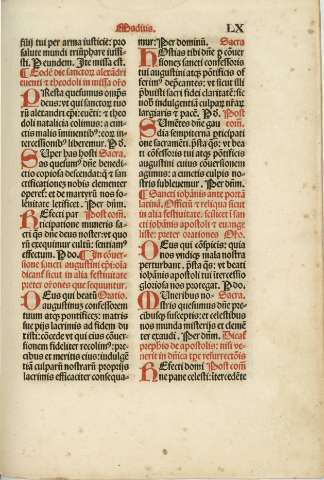 Madius.
LX
filij tui per arma iusticie: pro
salute mundi triũphare iussi-
sti. Per eundem. Ite missa est.
Eodẽ die sanctorũ alexãdri
euenti et theodoli in missa oro.
PResta quesumus omps
deus: vt qui sanctorũ tuo
rũ alexãdri epi: euẽti: et theo
doli natalicia colimus: a cun-
ctis malis iminentibꝰ: eorũ in-
tercessionibꝰ liberemur. P. d.
SUper has hosti Sacra.
as quesumꝰ dñe benedi-
ctio copiosa descendat: q̃ et san-
ctificationẽ nobis clementer
operet̃: et de martyrũ nos so-
lẽnitate letificet. Per dñm.
REfecti par Post com̃.
ticipatione muneris sa-
cri q̃s dñe deus noster: vt cuiꝰ
exequimur cultũ: sentiamꝰ
effectum. P. do. In cõuer-
sione sancti augustini ep̃i
dicant̃ sicut in alia festiuitate
preter orõnes que sequuntur.
DEus qui beatũ Oratio.
augustinus confessorem
tuum atq̃ pontificẽ: matris
sue pijs lacrimis ad fidem du
xisti: cõcede vt qui eius cõuer-
sionem fideliter recolimꝰ: pre-
cibus et meritis eius: indulgẽ
tiã culparũ nostrarũ proprijs
lacrimis efficaciter consequa-
mur. Per dominum. Sacra
HOstias tibi dñe p̃ cõuer
sionẽ sancti confessoris
tui augustini atq̃ põtificis of
ferimꝰ dep̃cantes: vt sicut illi
p̃buisti sacri fidei claritatẽ: sic
nob̃ indulgentiã culparũ nr̃arũ
largiaris et pacẽ. P. d. Post
SUmẽtes dñe gau com̃.
dia sempiterna p̃ticipati
one sacramẽti. p̃sta q̃s: vt bea
ti cõfessoris tui atq̃ põtificis
augustini cuius cõuersionem
agimus: a cunctis culpis no-
stris subleuemur. Per dñm.
Sancti iohãnis ante portã
latinã. Officiũ et reliqua sicut
in alia festiuitate: scilicet san
cti iohãnis apostoli et euange
liste: preter orationes. Oro.
DEus qui cõspicis: quia
nos vndiq̃ mala nostra
perturbant. p̃sta q̃s: vt beati
iohãnis apostoli tui itercessio
gloriosa nos protegat. P. do.
MUneribus no- Sacra.
stris quesumus dñe pre-
cibusq̃ susceptis: et celestibus
nos munda misterijs et clemẽ
ter exaudi. Per dñm. Dicat̃
prephatio de apostolis: nisi ve-
nerit in dñica tp̃e resurrectõis
REfecti domi Post com̃
ne pane celesti: itercedẽte